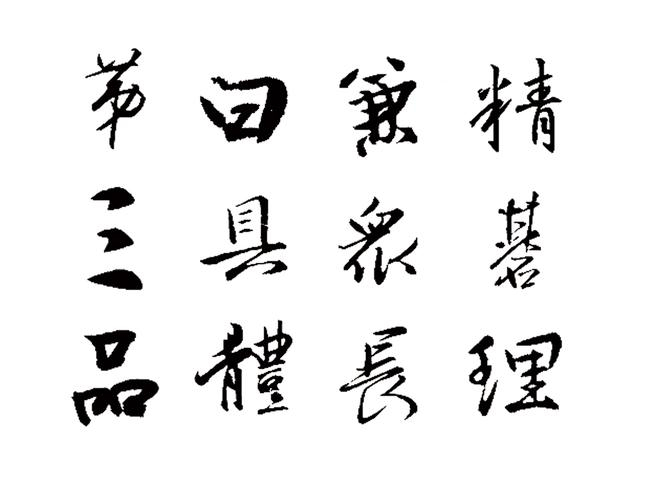 精碁理
兼眾長
曰具體
第三品